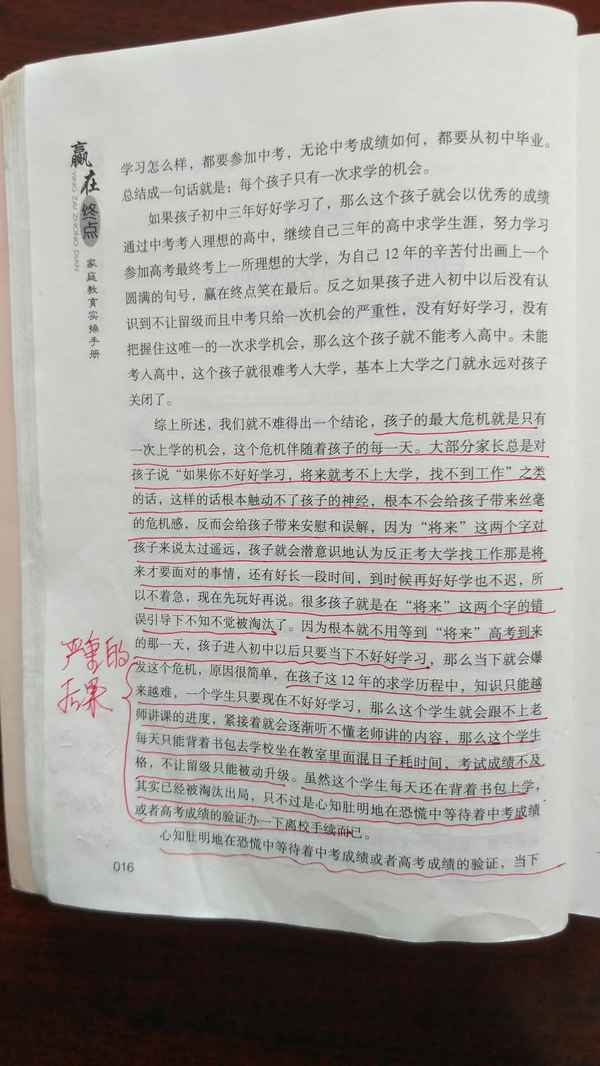 赢在终点
YING ZAI ZHONG DIAN
家庭教育实操手册
学习怎么样，都要参加中考，无论中考成绩如何，都要从初中毕业。
总结成一句话就是：每个孩子只有一次求学的机会。
如果孩子初中三年好好学习了，那么这个孩子就会以优秀的成绩
通过中考考入理想的高中，继续自己三年的高中求学生涯，努力学习
参加高考最终考上一所理想的大学，为自己 12 年的辛苦付出画上一个
圆满的句号，赢在终点笑在最后。反之如果孩子进入初中以后没有认
识到不让留级而且中考只给一次机会的严重性，没有好好学习，没有
把握住这唯一的一次求学机会，那么这个孩子就不能考入高中。未能
考入高中，这个孩子就很难考入大学，基本上大学之门就永远对孩子
关闭了。
综上所述，我们就不难得出一个结论，孩子的最大危机就是只有
一次上学的机会，这个危机伴随着孩子的每一天。大部分家长总是对
孩子说“如果你不好好学习，将来就考不上大学，找不到工作”之类
的话，这样的话根本触动不了孩子的神经，根本不会给孩子带来丝毫
的危机感，反而会给孩子带来安慰和误解，因为“将来”这两个字对
孩子来说太过遥远，孩子就会潜意识地认为反正考大学找工作那是将
来才要面对的事情，还有好长一段时间，到时候再好好学也不迟，所
以不着急，现在先玩好再说。很多孩子就是在“将来”这两个字的错
误引导下不知不觉被淘汰了。因为根本就不用等到“将来”高考到来
的那一天，孩子进入初中以后只要当下不好好学习，那么当下就会爆
发这个危机，原因很简单，在孩子这 12 年的求学历程中，知识只能越
来越难，一个学生只要现在不好好学习，那么这个学生就会跟不上老
师讲课的进度，紧接着就会逐渐听不懂老师讲的内容，那么这个学生
每天只能背着书包去学校坐在教室里面混日子耗时间，考试成绩不及
格，不让留级只能被动升级。虽然这个学生每天还在背着书包上学，
其实已经被淘汰出局，只不过是心知肚明地在恐慌中等待着中考成绩
或者高考成绩的验证办一下离校手续而已。
心知肚明地在恐慌中等待着中考成绩或者高考成绩的验证，当下
严重的
后果
016